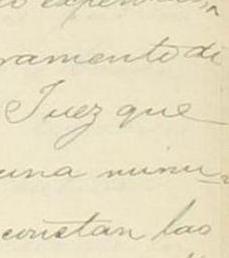 ramento di
Juez que
una minu-
constan las